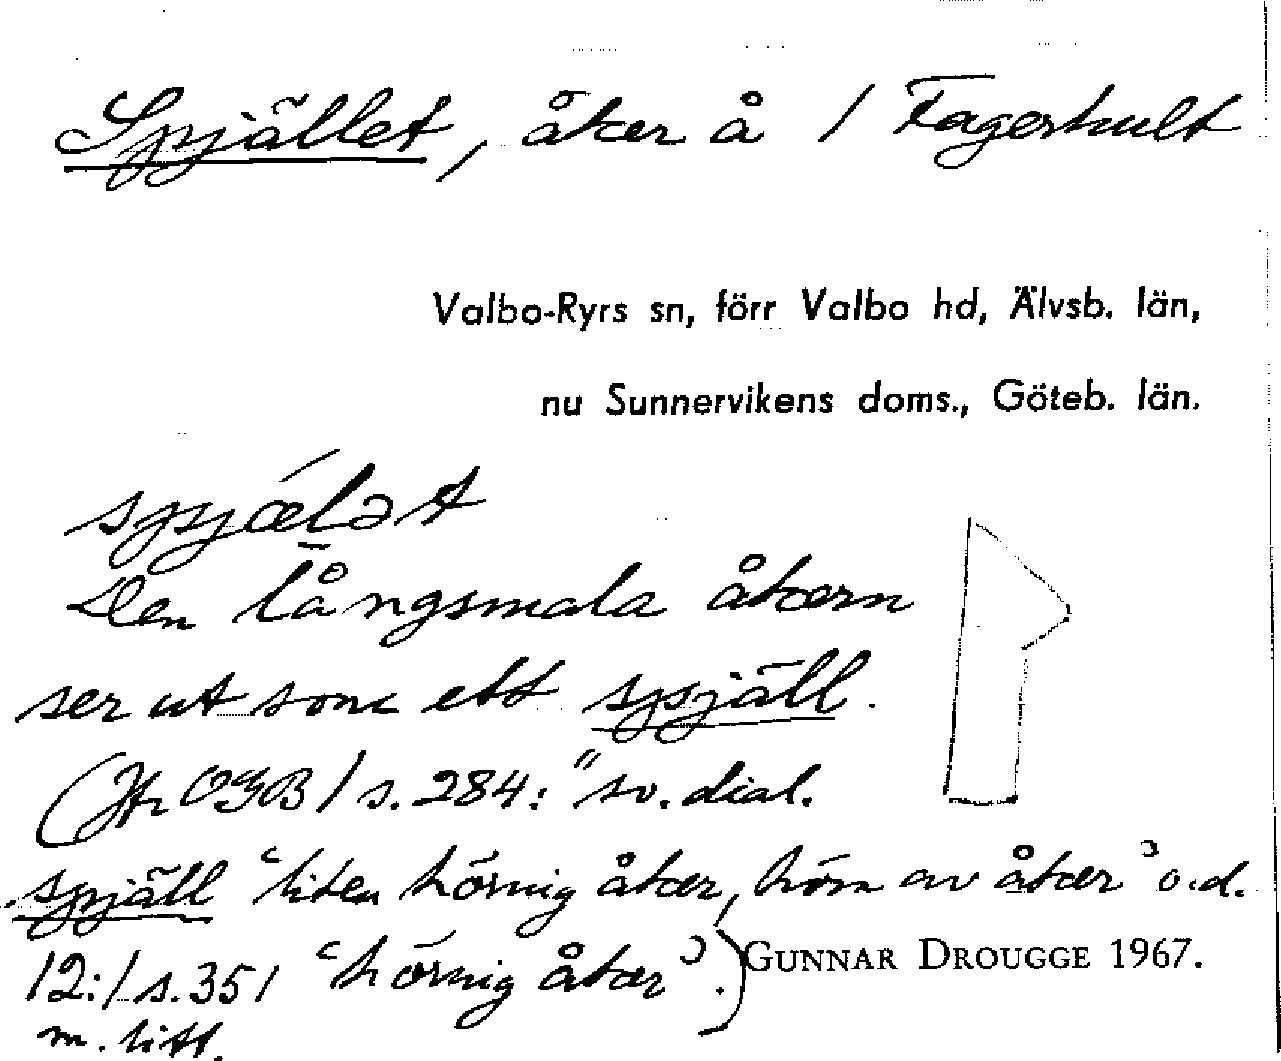 Spjället, åker å 1 Fagerhult
Valbo-Ryrs sn, förr Valbo hd, Älvsb. län,
nu Sunnervikens doms., Göteb. län.
spjælət
Den långsmala åkern
ser ut som ett spjäll.
(Jfr OGB 1 s. 284: "sv. dial.
spjäll 'liten hörnig åker, hörn av åker' o.d.
12:1 s. 351 'hörnig åker'.)
GUNNAR DROUGGE 1967.
m. litt.